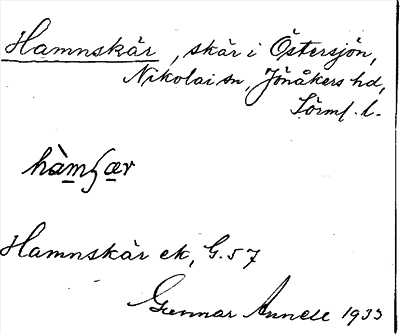 Hamnskär, skär i Östersjön,
Nikolai sn, Jönåkers hd,
Sörml. l.
hàmʃær
Hamnskär ek, G.57
Gunnar Annell 1933